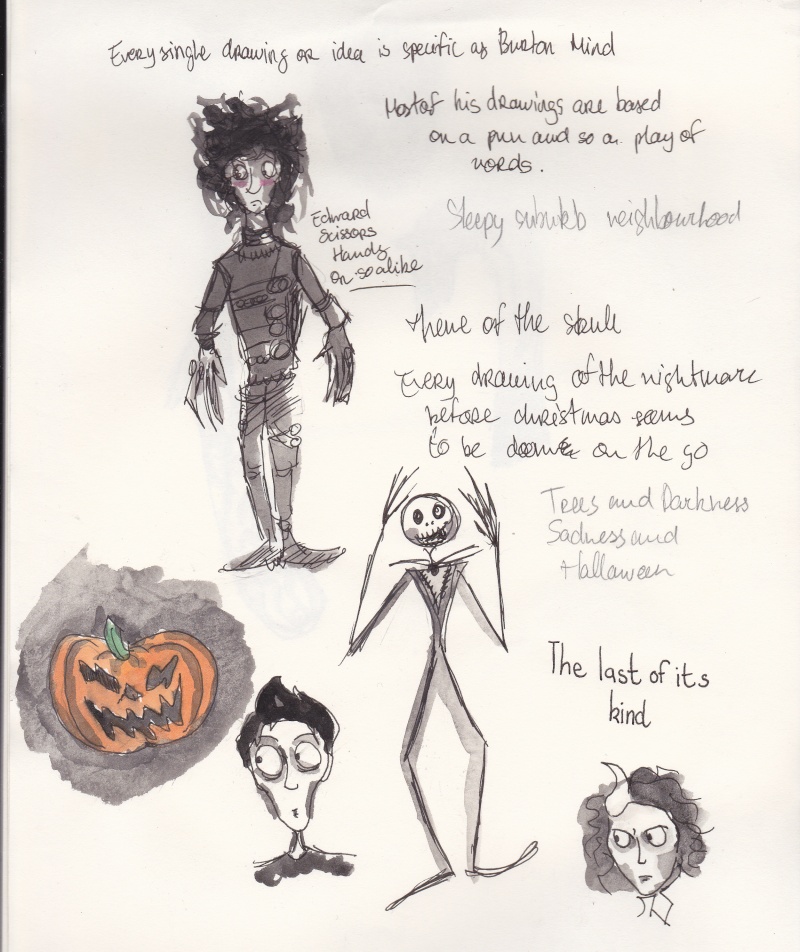 Every single drawing or idea is specific as Burton Mind
Most of his drawings are based
on a pun and so a play of
words.
Edward
Scissors
Hands
or so alike
Sleepy suburb neighbourhood
theme of the skull
Every drawing of the nightmare
before christmas seems
to be done on the go
Trees and Darkness
Sadness and
Halloween
The last of its
kind